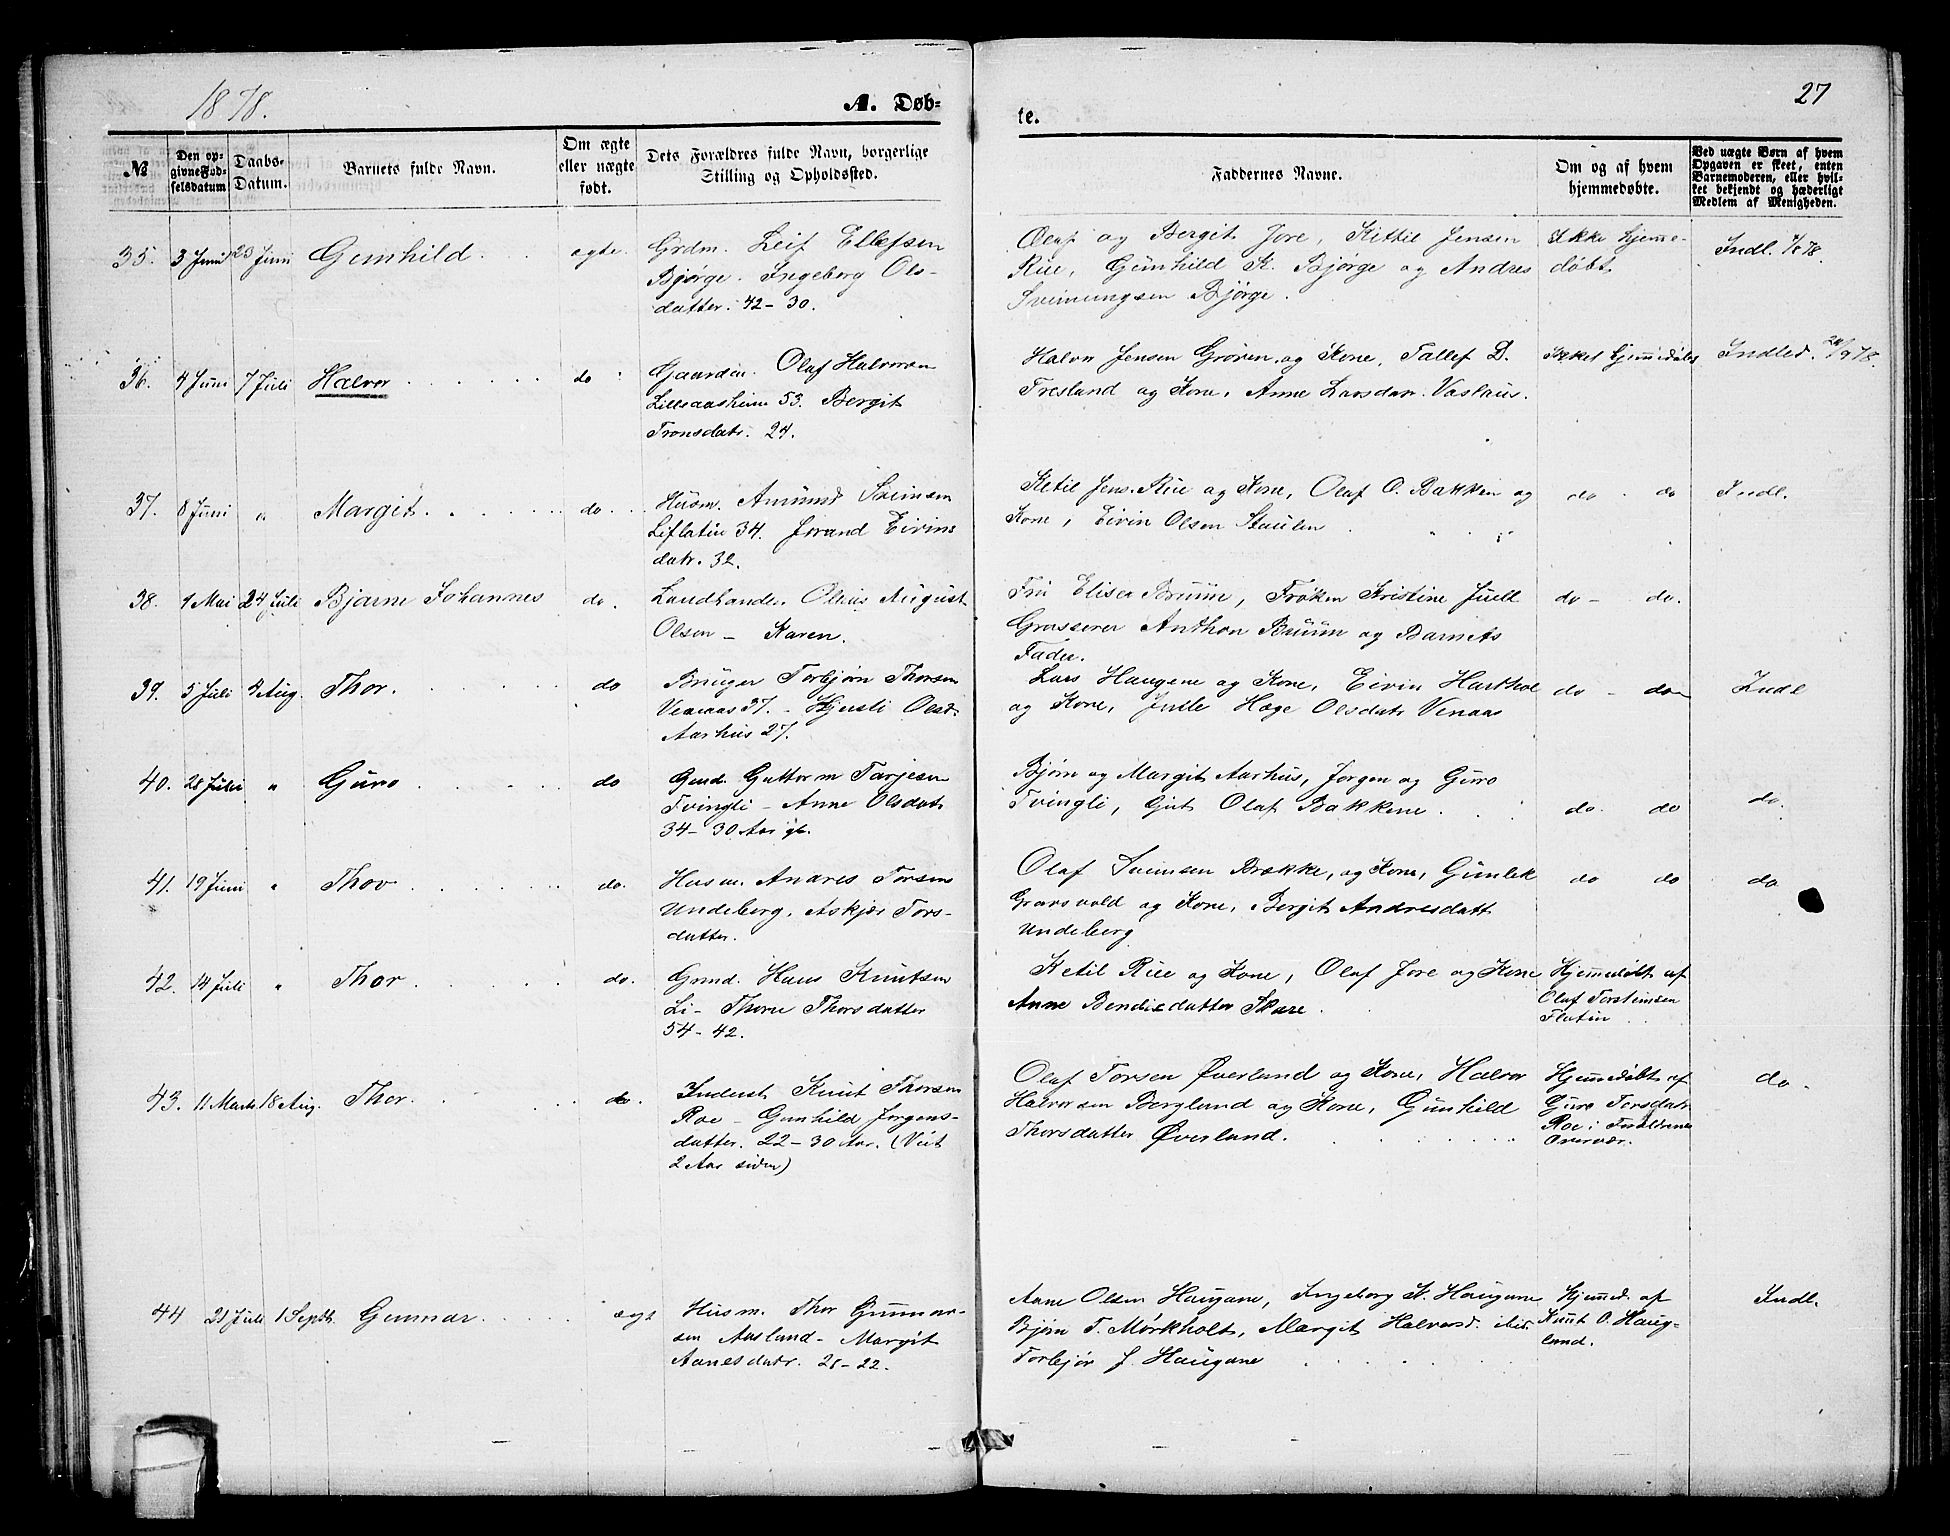 1878.
A. Døb-
te.
27
№
Den op-
givne Fød-
selsdatum
Daabs-
Datum.
Barnets fulde Navn.
Om ægte
eller uægte
født.
Dets Forældres fulde Navn, borgerlige
Stilling og Opholdssted.
Faddernes Navne.
Om og af hvem
hjemmedøbte.
Ved uægte Børn af hvem
Opgaven er skeet, enten
Barnemoderen, eller hvil-
ket bekjendt og hæderligt
Medlem af Menigheden.
35. 3 Juni 23 Juni Gunhild ægte. Grdm. Leif Ellefsen
Bjørge. Ingeborg Ols-
datter. 42-30.
Olaf og Bergit Jore, Kittil Jensen
Rue, Gunhild K. Bjørge og Andres
Sveinungsen Bjørge.
Ikke hjemme-
døbt.
Indl. 78.
36. 4 Juni 7 Juli Halvor do Olaf Halvorsen
53. Bergit
Tronsdatr. 24.
Halvor Jensen Grønen og Kone, Tallef D.
Fresland og Kone, Anne Larsdatr. Vashus.
hjemmedøbt
Indled. 78.
37. 8 Juni " Margit. do. Husm. Amund Sveinsen
34. Jorand Eivins
datr. 32.
Ketil Jens. Rue og Kone, Olaf O. Bakken og
Kone, Eivin Olsen Staulen
do. do
Indl.
38. 1 Mai 24 Juli Bjarne Johannes do. Landhandler August
Olsen - Karen.
Fru Elisea Bruun, Frøken Kristine Juell
Grosserer Anthon Bruun og Barnets
Fader.
do - do.
39. 5 Juli 4 Aug. Thor. do Bruger Torbjørn Thorsen
Venaas 37. - Kjersti Olsd.
Aarhus 27.
Lars Haugene og Kone, Eivin
og Kone, Hæge Olsdatr Venaas
do - do
Indl
40. 28 Juli " Guro do Grnd. Guttorm Tarjesen
Tvingli - Anne Olsdatr
34-30 Aar gl.
Bjørn og Margit Aarhus, Jørgen og Guro
Tvingli, Gut Olaf Bakkene.
do. do
do.
41. 19 Juni " Thov do. Husm. Andres Torsens
Undeberg, Askjær Tors-
datter.
Olaf Sveinsen Brække, og Kone, Gunlek
Grovsvold og Kone, Bergit Andresdatt
Undeberg
do do
do
42. 14 Juli " Thor do. Grnd. Hans Knutsen
Li - Thorsdatter
54-42.
Ketil Rue og Kone, Olaf Jore og Kone
Anne Bendiksdatter Skare.
Hjemmedøbt af
Olaf Torsteinsen
Flatin
43. 11 Marts 18 Aug. Thor. do Inderst Knut Thorsen
Roe - Gunhild Jørgens-
datter. 22-30 Aar. (Viet
2 Aar siden)
Olaf Torsen Øverland og Kone, Halvor
Halvorsen Bergland og Kone, Gunhild
Thorsdatter Øverland.
Hjemmedøbt af
Guro Torsdatr
Roe i Forældrenes
Overvær.
do.
44 21 Juli 1 Septb. Gunnar. ægt Husm. Thor Gunnar-
sen Aasland - Margit
Aanesdatr. 28-22.
Aane Olsen Haugane, Ingeborg K. Haugane
Bjørn T. Mørkholt, Margit Halvorsd.
Torbjør J. Haugane
Hjemmed. af
Knut O. Haug-
land.
Indl.